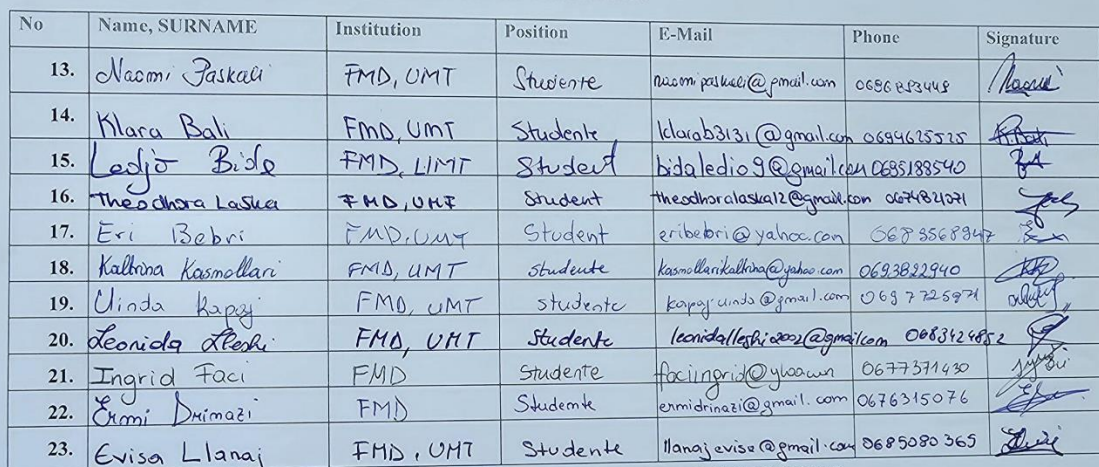 No Name, SURNAME Institution Position E-Mail Phone Signature
13. Naomi Paskali FMD, UMT Studente naomipaskali@gmail.com 0696883448
14. Klara Bali FMD, UMT Studente klarab3131@gmail.com 0694625525
15. Ledjo Bide FMD, UMT Student bidaledio9@gmail.com 0695188540
16. Theodhora Laska FMD, UMT Student theodhoralaska12@gmail.com 0674821071
17. Eri Bebri FMD, UMT Student eribebri@yahoo.com 0683568947
18. Kaltrina Kasmollari FMD, UMT studente kasmollarikaltrina@yahoo.com 0693822940
19. Uinda Kapaj FMD, UMT studente kapajuinda@gmail.com 0697725971
20. Leonida Lleshi FMD, UMT Studente leonidalleshi2002@gmail.com 0683424852
21. Ingrid Faci FMD Studente 0677371430
22. Ermi Drinazi FMD Studente ermidrinazi@gmail.com 0676315076
23. Evisa Llanaj FMD, UMT Studente llanajevisa@gmail.com 0685080365